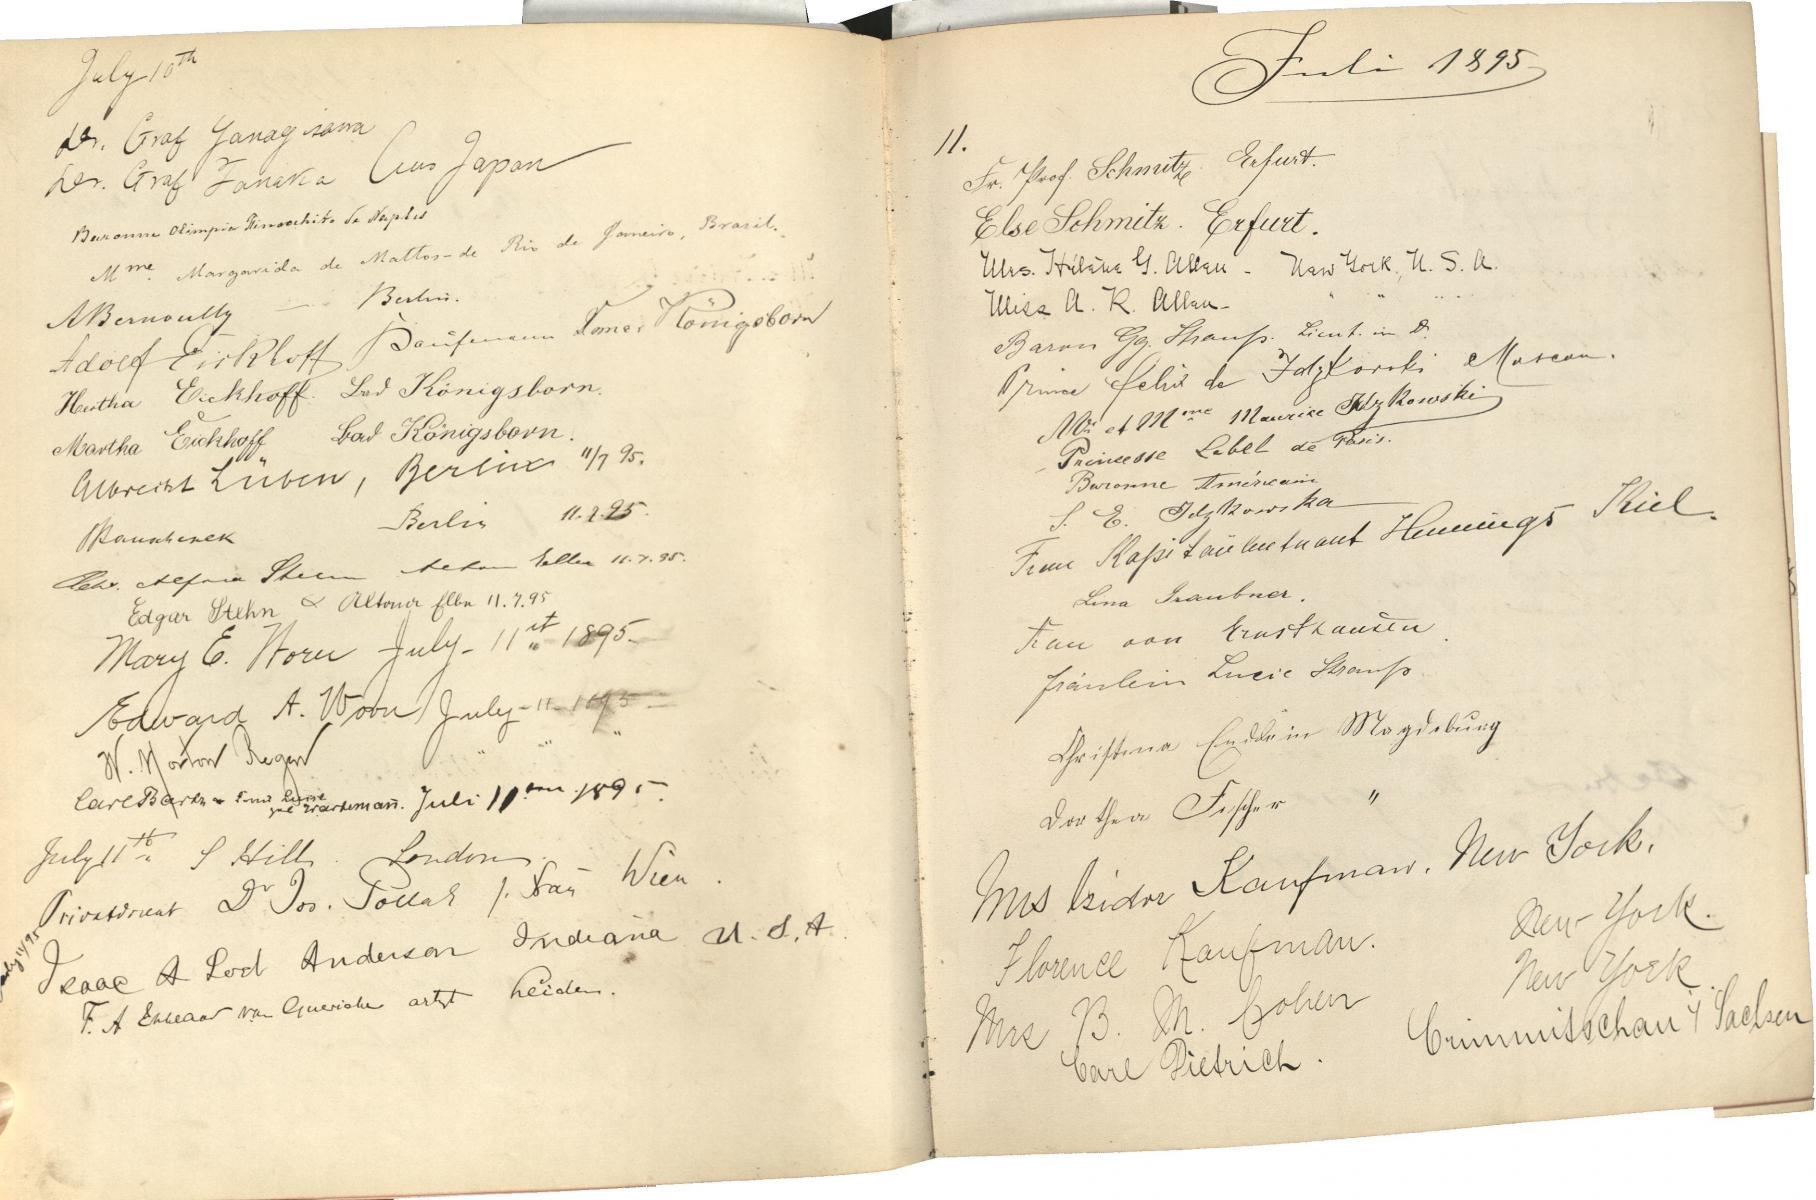 July 10th
Dr. Graf Yanagisawa
Dr. Graf Tanaka aus Japan
Baronne Olimpia de Naples
Mme. Margarida de Mattos - de Rio de Janeiro, Brasil.
A Bernoully - Berlin.
Adolf Eickhoff Kaufmann Königsborn
Hertha Eickhoff. Bad Königsborn.
Martha Eickhoff Bad Königsborn.
Albrecht Lüben, Berlin 11/7 95.
Berlin 11.7.95.
11.7.95.
Edgar Stehn Altona Elbe 11.7.95
Mary E. Worn July - 11st 1895 -
Edward A. Worn July - 11 - 1895 -
W. Morton Regen " " "
Carl Juli 11 1895.
July 11th S Hill. London.
Privatdocent Dr Jos. Pollak Wien.
July 11/95
Isaac A Lod Anderson Indiana U.S.A.
F. A van Guericke artzt Leiden.
Juli 1895
11.
Fr. Prof. Schmitz. Erfurt.
Else Schmitz. Erfurt.
Mrs. Hélène G. Allen - New York, U. S. A.
Miss A. R. Allen - " " "
Baron Gg. Strauß. Lieut. in D.
Prince Felix de Idzkowski Moscou.
Mr et Mme Maurice Idzkowski
Princesse Lebel de Paris.
Baronne Américain
S. E. Idzkowska
Frau Kapitänleutnant Hennings Kiel.
Lina Traubner.
Frau von Ernsthausen.
Fräulein Lucie Strauß
Christina Magdeburg
Dorthea Fischer "
Mrs Isidor Kaufman. New York.
Florence Kaufman. New York.
Mrs B. M. Cohen New York.
Carl Dietrich. Crimmitschau i/ Sachsen